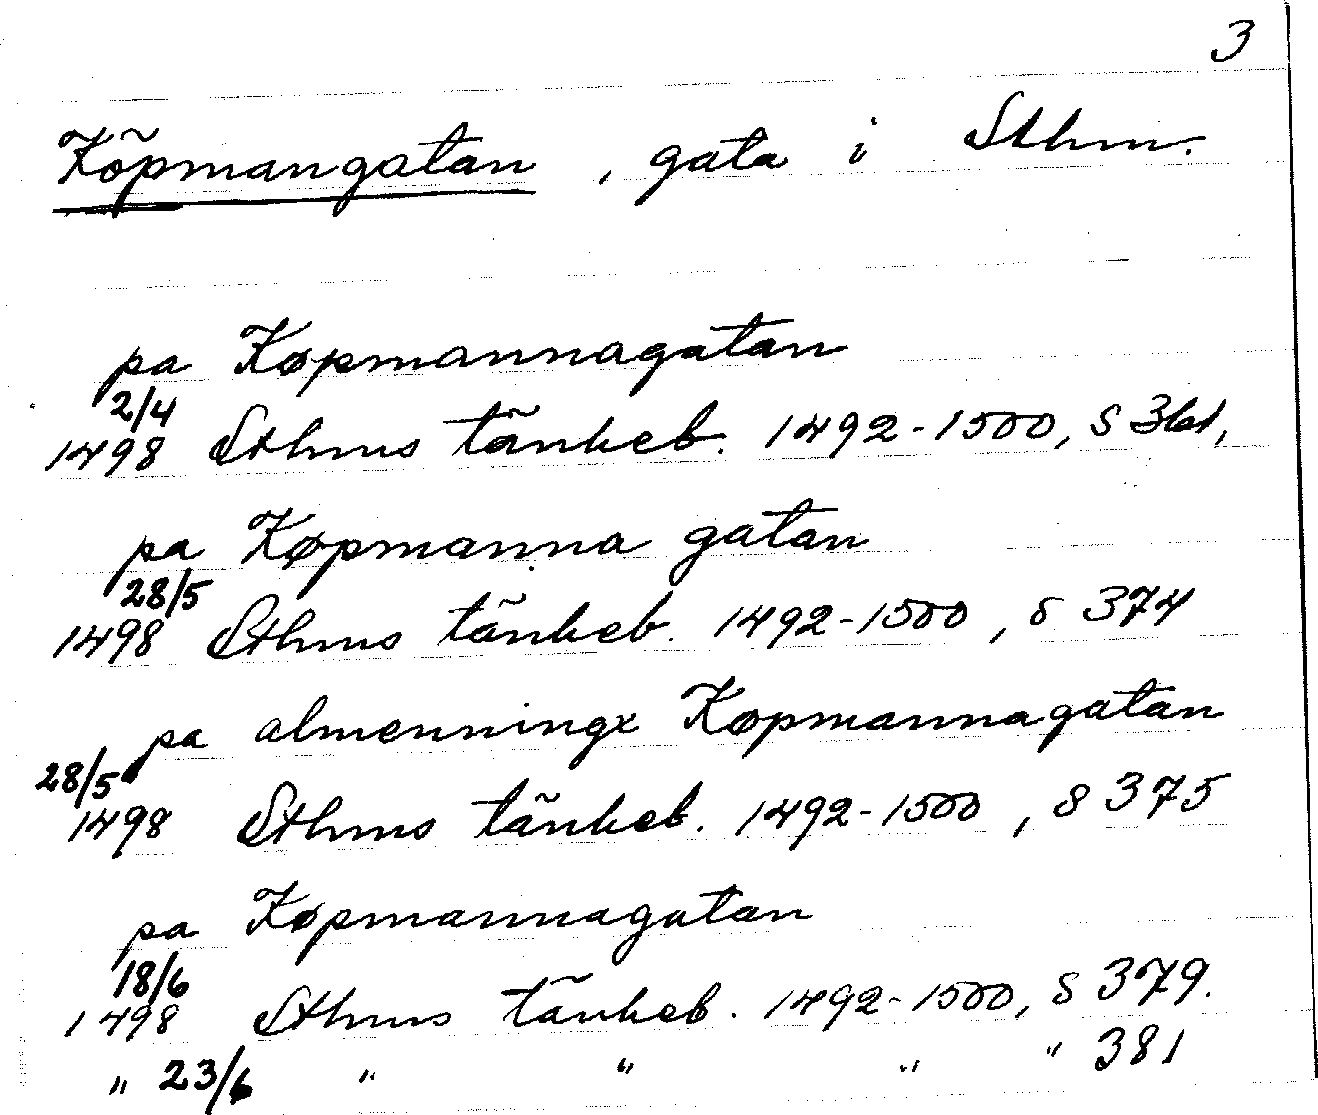 3
Köpmangatan, gata i Sthm.
pa Køpmannagatan
2/4
1498 Sthms tänkeb. 1492-1500, S 361,
pa Køpmanna gatan
28/5
1498 Sthms tänkeb. 1492-1500, S 374
pa almenningx Køpmannagatan
28/5
1498 Sthms tänkeb. 1492-1500, S 375
pa Køpmannagatan
18/6
1498 Sthms tänkeb. 1492-1500, S 379.
" 23/6 " " " " 381